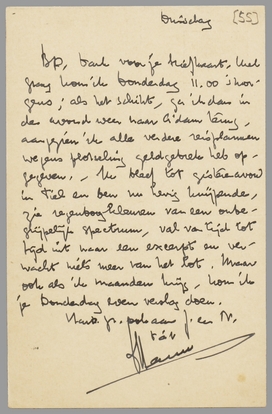 Dinsdag [55]
BP, dank voor je briefkaart. Heel
graag kom ik Donderdag 11.00 's mor-
gens; als het schikt, ga ik dan in
den avond weer naar A'dam terug,
aangezien ik alle verdere reisplannen
wegens plotseling geldgebrek heb op-
gegeven. Ik bleef tot gisteravond
in Tiel en ben nu hevig
zie regenboogkleuren van een onbe-
grijpelijk spectrum, val van tijd tot
tijd uit naar een excerpt en ver-
wacht niets meer van het lot. Maar
ook als ik de maanden krijg, kom ik
je Donderdag even verslag doen.
Hart. gr. ook aan J. en N.
t.à.t.